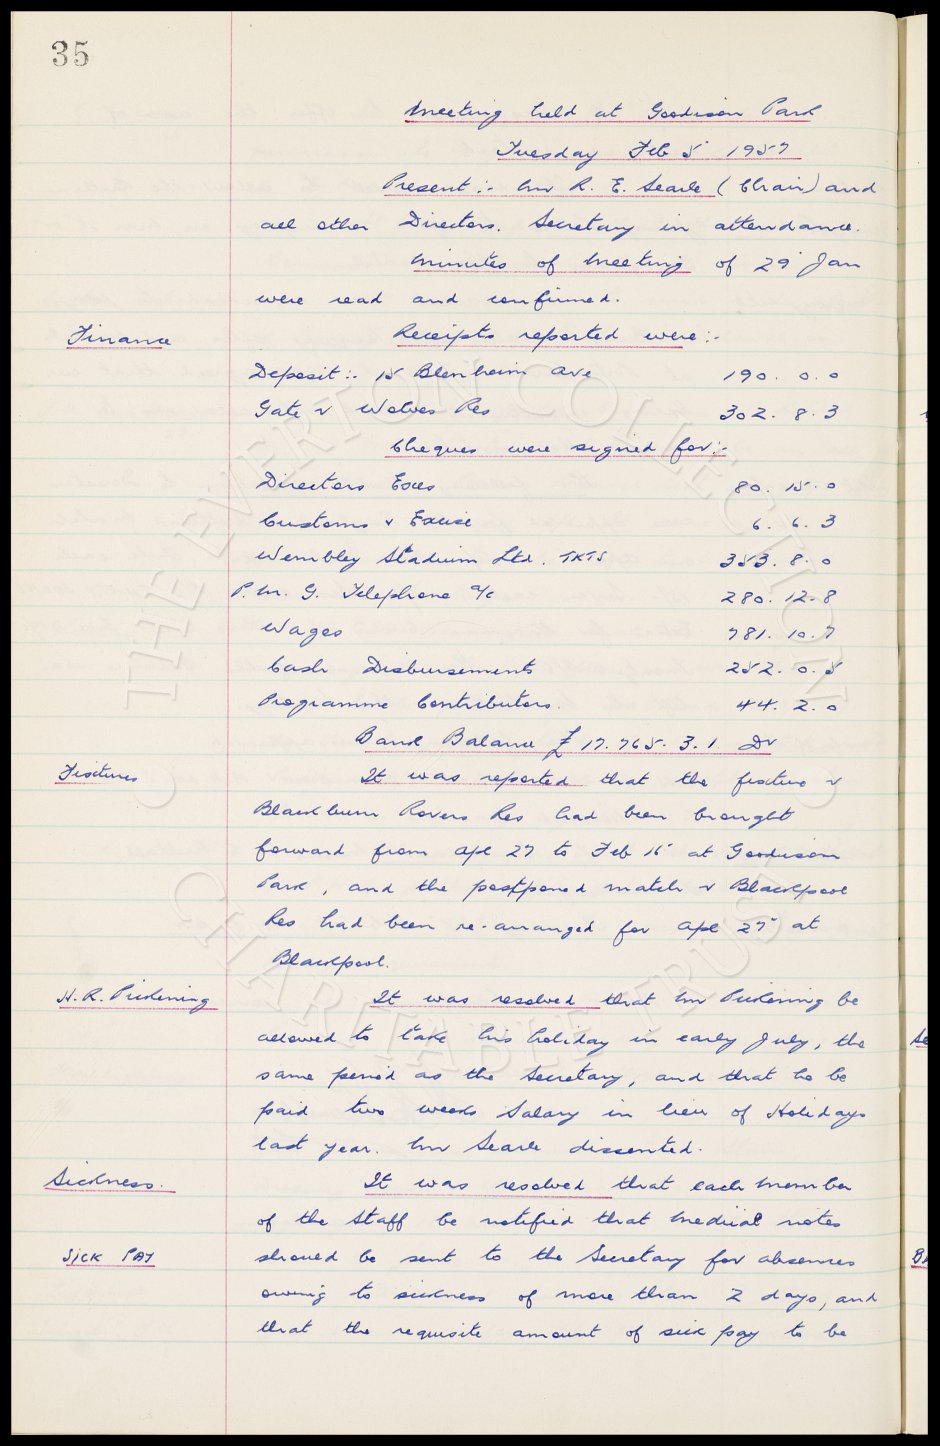 35
Meeting held at Goodison Park
Tuesday Feb 5' 1957
Present :- Mr R. E. Searle (Chair) and
all other Directors. Secretary in attendance.
Minutes of Meeting of 29' Jan
were read and confirmed.
Finance Receipts reported were :-
Deposit :- 15 Blenheim Ave 190. 0. 0
Gate v Wolves Res 302. 8. 3
Cheques were signed for :-
Directors Exes 80. 15. 0
Customs & Excise 6. 6. 3
Wembley Stadium Ltd. TKTS 353. 8. 0
P. M. G. Telephone a/c 280. 12. 8
Wages 781. 10. 7
Cash Disbursements 252. 0. 5
Programme Contributors. 44. 2. 0
Bank Balance £17.765. 3. 1 Dr
Fixtures It was reported that the fixture v
Blackburn Rovers Res had been brought
forward from Apl 27 to Feb 16' at Goodison
Park, and the postponed match v Blackpool
Res had been re-arranged for Apl 27' at
Blackpool.
H. R. Pickering It was resolved that Mr Pickering be
allowed to take his holiday in early July, the
same period as the Secretary, and that he be
paid two weeks Salary in lieu of Holidays
last year. Mr Searle dissented.
Sickness. It was resolved that each member
of the Staff be notified that Medical notes
Sick Pay should be sent to the Secretary for absences
owing to sickness of more than 2 days, and
that the requisite amount of sick pay to be
THE EVERTON COLLECTION
CHARITABLE TRUST